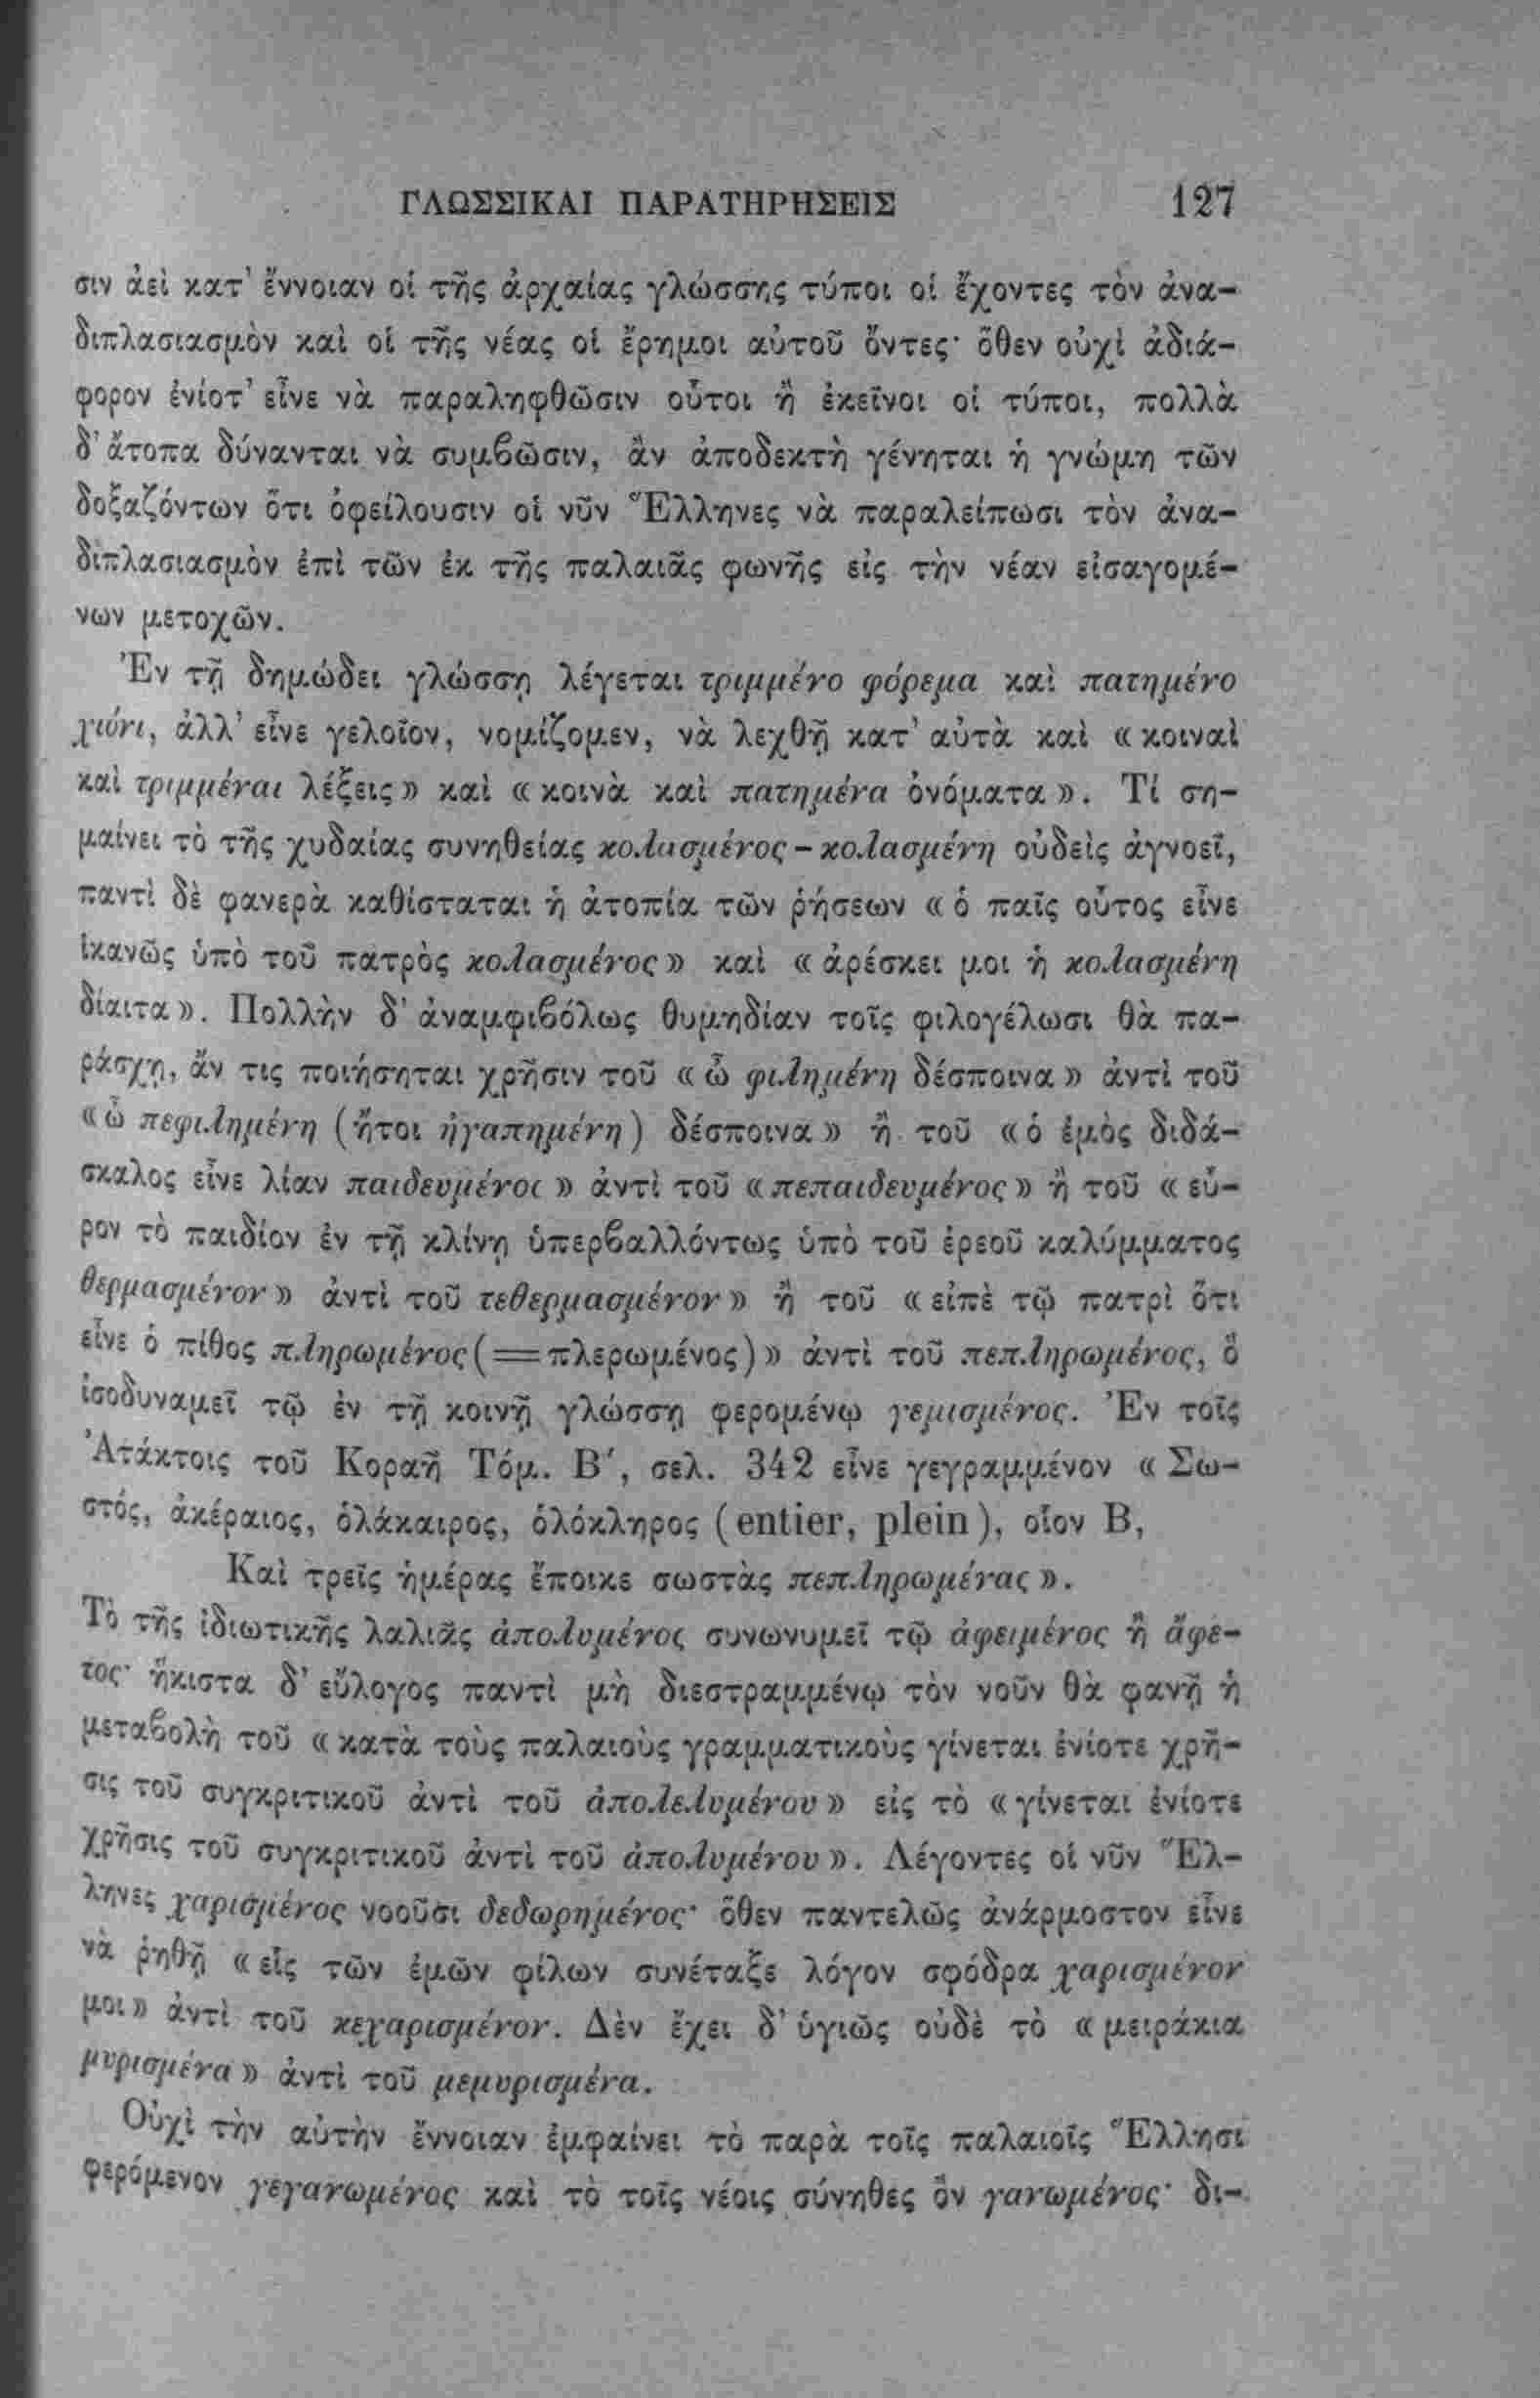 ΓΛΩΣΣΙΚΑΙ ΠΑΡΑΤΗΡΗΣΕΙΣ 127
σιν ἀεὶ κατ' ἔννοιαν οἱ τῆς ἀρχαίας γλώσσης τύποι οἱ ἔχοντες τὸν ἀνα-
διπλασιασμὸν καὶ οἱ τῆς νέας οἱ ἔρημοι αὐτοῦ ὄντες· ὅθεν οὐχὶ ἀδιά-
φορον ἐνίοτ' εἶνε νὰ παραληφθῶσιν οὗτοι ἢ ἐκεῖνοι οἱ τύποι, πολλὰ
δ' ἄτοπα δύνανται νὰ συμβῶσιν, ἂν ἀποδεκτὴ γένηται ἡ γνώμη τῶν
δοξαζόντων ὅτι ὀφείλουσιν οἱ νῦν Ἕλληνες νὰ παραλείπωσι τὸν ἀνα-
διπλασιασμὸν ἐπὶ τῶν ἐκ τῆς παλαιᾶς φωνῆς εἰς τὴν νέαν εἰσαγομέ-
νων μετοχῶν.
Ἐν τῇ δημώδει γλώσσῃ λέγεται τριμμένο φόρεμα καὶ πατημένο
χιόνι, ἀλλ' εἶνε γελοῖον, νομίζομεν, νὰ λεχθῇ κατ' αὐτὰ καὶ « κοιναὶ
καὶ τριμμέναι λέξεις » καὶ « κοινὰ καὶ πατημένα ὀνόματα ». Τί ση-
μαίνει τὸ τῆς χυδαίας συνηθείας κολασμένος - κολασμένη οὐδεὶς ἀγνοεῖ,
παντὶ δὲ φανερὰ καθίσταται ἡ ἀτοπία τῶν ῥήσεων « ὁ παῖς οὗτος εἶνε
ἱκανῶς ὑπὸ τοῦ πατρὸς κολασμένος » καὶ « ἀρέσκει μοι ἡ κολασμένη
δίαιτα ». Πολλὴν δ' ἀναμφιβόλως θυμηδίαν τοῖς φιλογέλωσι θὰ πα-
ράσχῃ, ἄν τις ποιήσηται χρῆσιν τοῦ « ὦ φιλημένη δέσποινα » ἀντὶ τοῦ
« ὦ πεφιλημένη (ἤτοι ἠγαπημένη) δέσποινα » ἢ τοῦ « ὁ ἐμὸς διδά-
σκαλος εἶνε λίαν παιδευμένος » ἀντὶ τοῦ « πεπαιδευμένος » ἢ τοῦ « εὗ-
ρον τὸ παιδίον ἐν τῇ κλίνῃ ὑπερβαλλόντως ὑπὸ τοῦ ἐρεοῦ καλύμματος
θερμασμένον » ἀντὶ τοῦ τεθερμασμένον » ἢ τοῦ « εἰπὲ τῷ πατρὶ ὅτι
εἶνε ὁ πίθος πληρωμένος (=πλερωμένος) » ἀντὶ τοῦ πεπληρωμένος, ὃ
ἰσοδυναμεῖ τῷ ἐν τῇ κοινῇ γλώσσῃ φερομένῳ γεμισμένος. Ἐν τοῖς
Ἀτάκτοις τοῦ Κοραῆ Τόμ. Β', σελ. 342 εἶνε γεγραμμένον « Σω-
στός, ἀκέραιος, ὁλάκαιρος, ὁλόκληρος (entier, plein), οἷον Β,
Καὶ τρεῖς ἡμέρας ἔποικε σωστὰς πεπληρωμένας ».
Τὸ τῆς ἰδιωτικῆς λαλιᾶς ἀπολυμένος συνωνυμεῖ τῷ ἀφειμένος ἢ ἄφε-
τος· ἥκιστα δ' εὔλογος παντὶ μὴ διεστραμμένῳ τὸν νοῦν θὰ φανῇ ἡ
μεταβολὴ τοῦ « κατὰ τοὺς παλαιοὺς γραμματικοὺς γίνεται ἐνίοτε χρῆ-
σις τοῦ συγκριτικοῦ ἀντὶ τοῦ ἀπολελυμένου » εἰς τὸ « γίνεται ἐνίοτε
χρῆσις τοῦ συγκριτικοῦ ἀντὶ τοῦ ἀπολυμένου ». Λέγοντες οἱ νῦν Ἕλ-
ληνες χαρισμένος νοοῦσι δεδωρημένος· ὅθεν παντελῶς ἀνάρμοστον εἶνε
νὰ ῥηθῇ « εἷς τῶν ἐμῶν φίλων συνέταξε λόγον σφόδρα χαρισμένον
μοι » ἀντὶ τοῦ κεχαρισμένον. Δὲν ἔχει δ' ὑγιῶς οὐδὲ τὸ « μειράκια
μυρισμένα » ἀντὶ τοῦ μεμυρισμένα.
Οὐχὶ τὴν αὐτὴν ἔννοιαν ἐμφαίνει τὸ παρὰ τοῖς παλαιοῖς Ἕλλησι
φερόμενον γεγανωμένος καὶ τὸ τοῖς νέοις σύνηθες ὂν γανωμένος· δι-